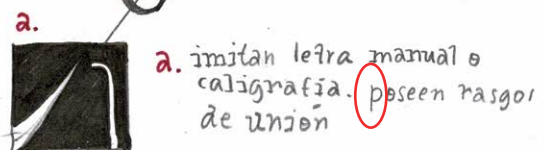 a.
a. imitan letra manual o
caligrafía. poseen rasgos
de unión